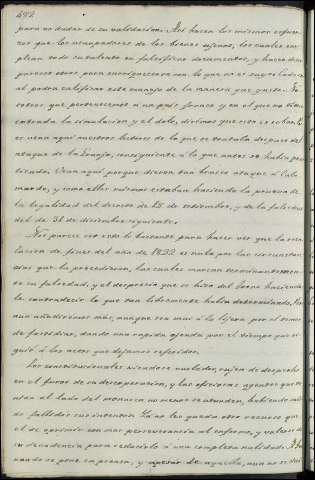 492
para no dudar de su validacion. Asi hacen los mismos esfuer-
zos que los usurpadores de los bienes ajenos, los cuales em-
plean todo su talento en falsificar documentos, y hacerlos
parecer otros para enriquecerse con lo que no es suyo.
al podra calificar este manejo de la manera que guste. No-
sotros que pertenecemos á un pais franco y en el que no tiene
entrada la simulacion y el dolo, diremos que esto es
es vean aqui nuestros lectores de lo que se trataba despues del
ataque de la Granja, consiguiente á lo que antes se habia
Vean aqui porque dieron tan brusco ataque á
y como ellos mismos estaban haciendo la prueba de
la legalidad del decreto de 18 de setiembre, y de la falsedad
del de 31 de diciembre siguiente.
Nos parece ser esto lo bastante para hacer ver que la
de fines del año de 1832 es nula por las circunstan-
cias que la precedieron, las cuales marcan terminantemen-
te su falsedad, y el desprecio que se hizo del heroe haciendo-
le contradecir lo que tan libremente habia determinado.
aun añadiremos mas, aunque sea mui á la lijera por el temor
de fastidiar, dando una rapida ojeada por el tiempo que si-
guió á los actos que dejamos referidos.
Los constitucionales viendose burlados, rujen de despecho
en el furor de su desesperacion, y los oficiosos agentes que te-
nian al lado del monarca no menos se aturden, habiendo sali-
do fallidos sus intentos. Ya no les queda otro recurso que
el de oprimir con mas perseverancia al enfermo, y valerse de
su decadencia para reducirlo á una completa nulidad.
se pone en prensa, y apesar de aquella, aun no se